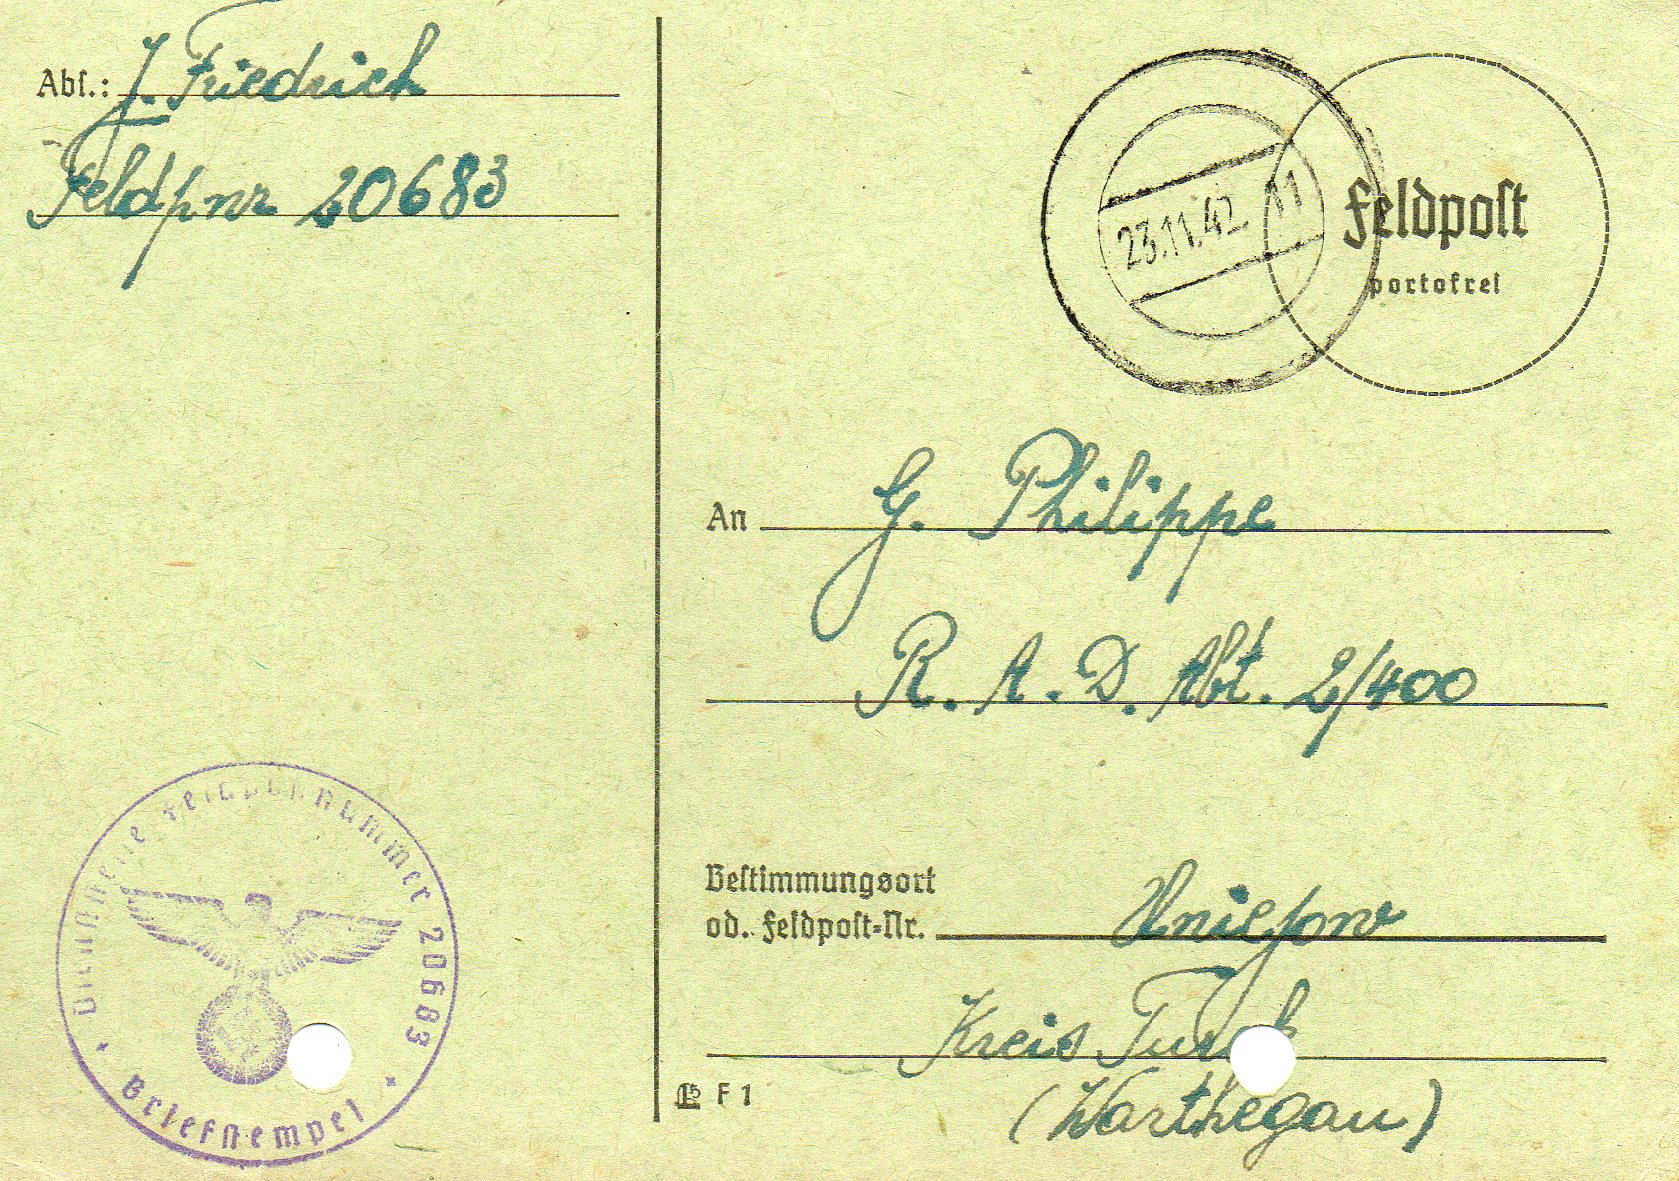 Abs.: J. Friedrich
Feldpnr 20683
23.11.42 11
Feldpost
portofrei
An G. Philippe
R. A. D. Abt. 2/400
Bestimmungsort
od. Feldpost-Nr. Uniejow
Kreis Turek
(Warthegau)
F 1
Dienststelle Feldpostnummer 20683
Briefstempel